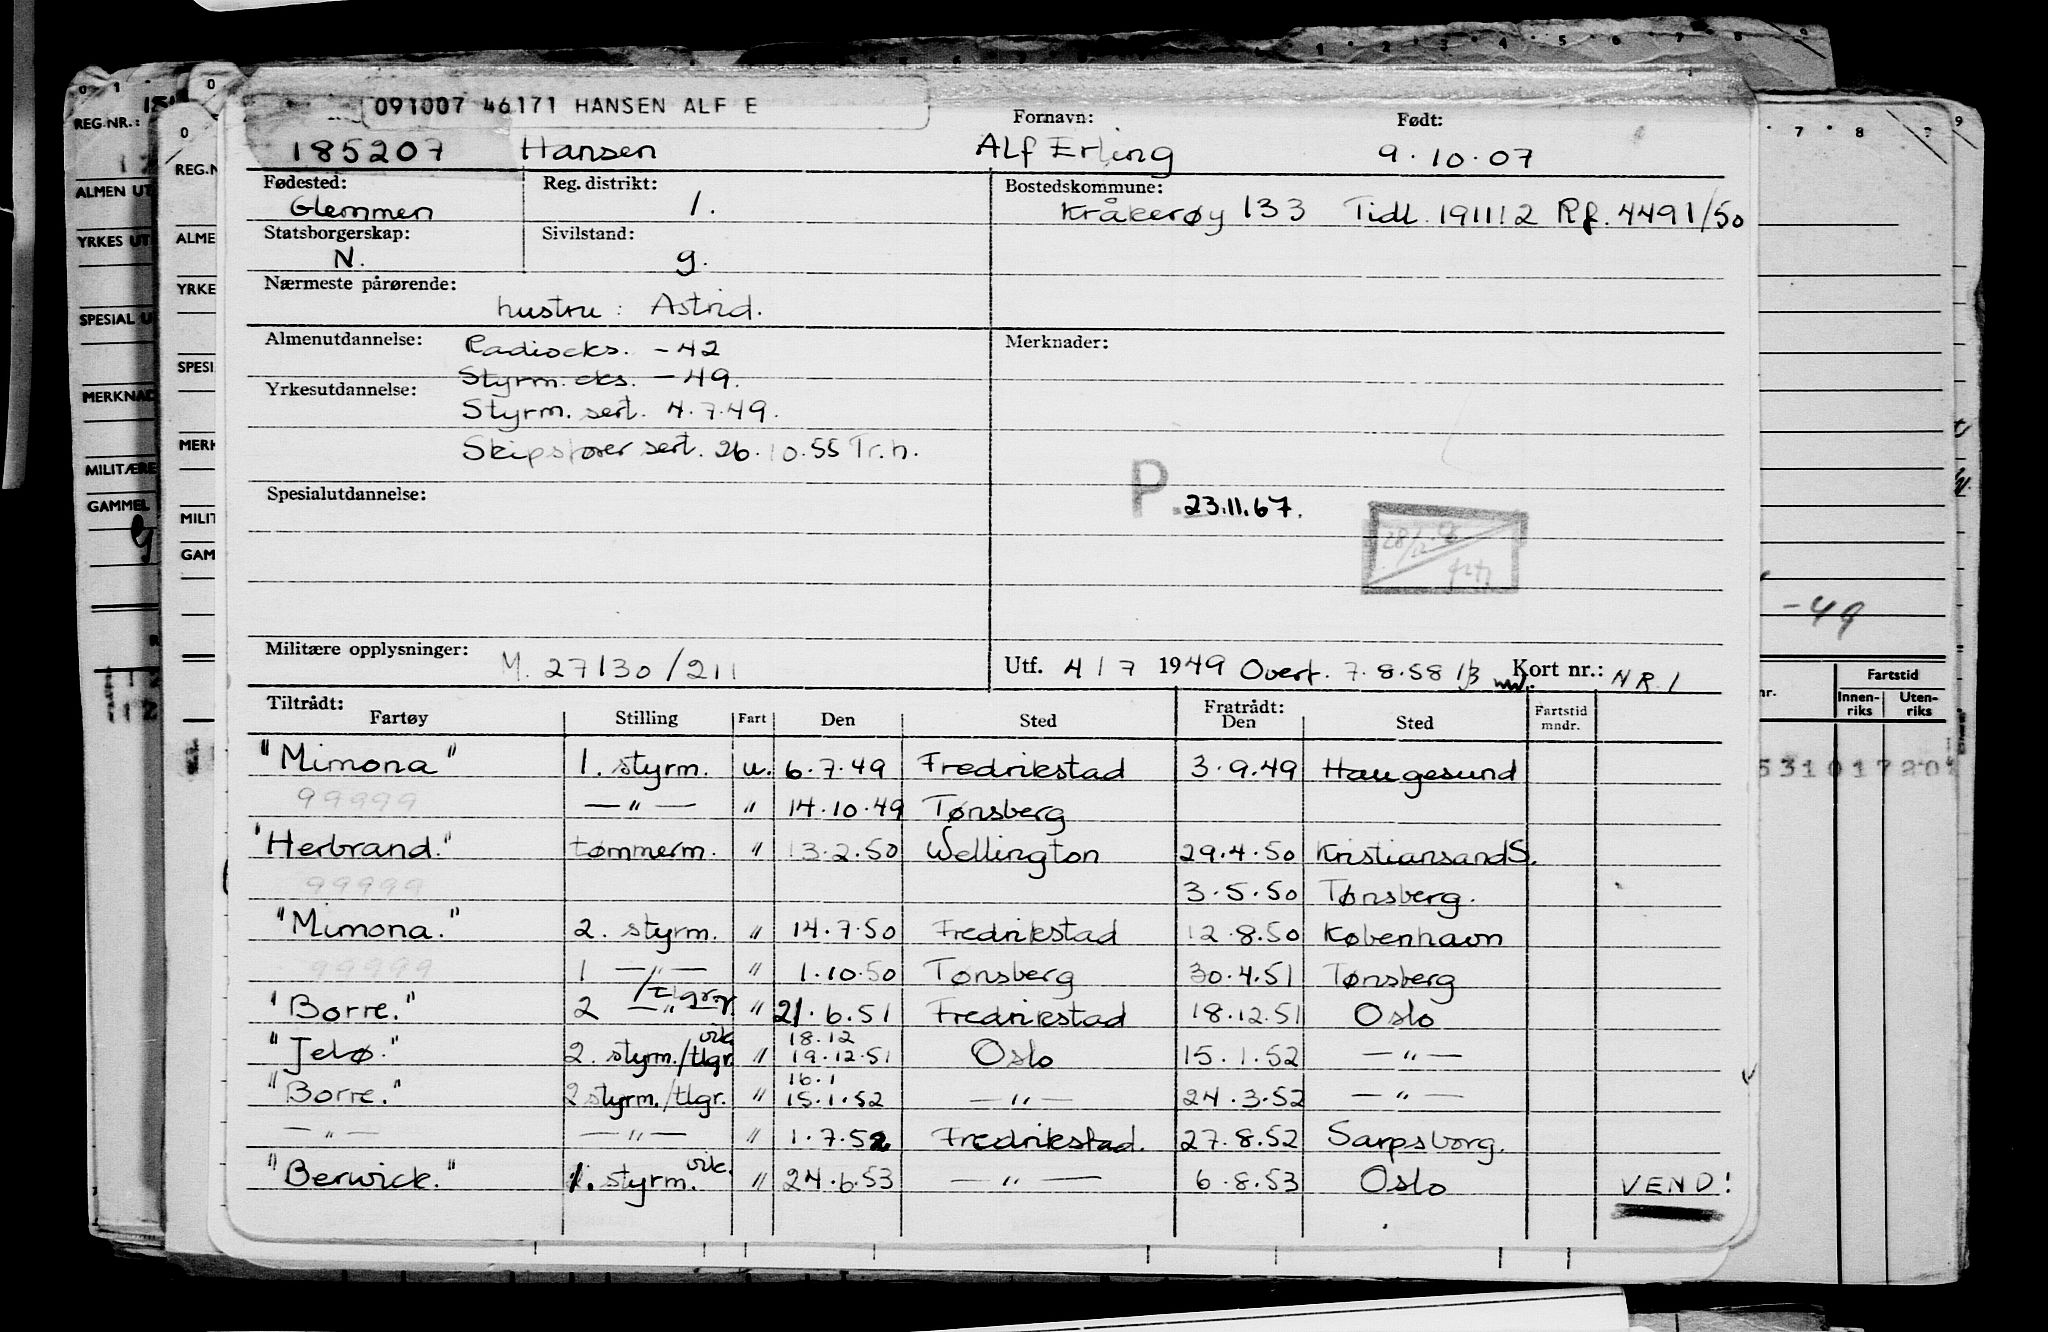 091007 46171 HANSEN ALF E
Fornavn: Født:
185207 Hansen Alf Erling 9.10.07
Fødested: Reg. distrikt: Bostedskommune:
Glemmen 1. Kråkerøy 133 Tidl. 191112 Rf. 4491/50
Statsborgerskap: Sivilstand:
N. g.
Nærmeste pårørende:
hustru: Astrid.
Almenutdannelse: Radioeks. -42 Merknader:
Styrm. eks. -49.
Yrkesutdannelse:
Styrm. sert. 4.7.49.
Skipsfører sert. 26.10.55 Tr.h.
Spesialutdannelse:
P. 23.11.67.
Militære opplysninger: M. 27130/211 Utf. 4/7 1949 Overt. 7.8.58 Kort nr.: NR.1
Tiltrådt: Fratrådt: Fartstid
Fartøy Stilling Fart Den Sted Den Sted mndr.
"Mimona" 1. styrm. u. 6.7.49 Fredrikstad 3.9.49 Haugesund
99999 —"— " 14.10.49 Tønsberg
"Herbrand." tømmerm. " 13.2.50 Wellington 29.4.50 Kristiansand S.
99999 3.5.50 Tønsberg.
"Mimona." 2. styrm. " 14.7.50 Fredrikstad 12.8.50 København
99999 1 —"— " 1.10.50 Tønsberg 30.4.51 Tønsberg
"Borre." 2 —"— " 21.6.51 Fredrikstad 18.12.51 Oslo
vik. 18.12
"Jelø." 2. styrm./tlgr. " 19.12.51 Oslo 15.1.52 —"—
16.1
"Borre." 2 styrm./tlgr. " 15.1.52 —"— 24.3.52 —"—
—"— —"— " 1.7.52 Fredrikstad. 27.8.52 Sarpsborg.
vik.
"Berwick." 1. styrm. " 24.6.53 —"— 6.8.53 Oslo VEND!
REG.NR.:
ALMEN UT
YRKES UT
SPESIAL U
MERKNAD
MILITÆRE
GAMMEL
REG.N
ALME
YRKE
SPESI
MERK
MILIT
GAM
-49
Fartstid
Innen-riks Uten-riks